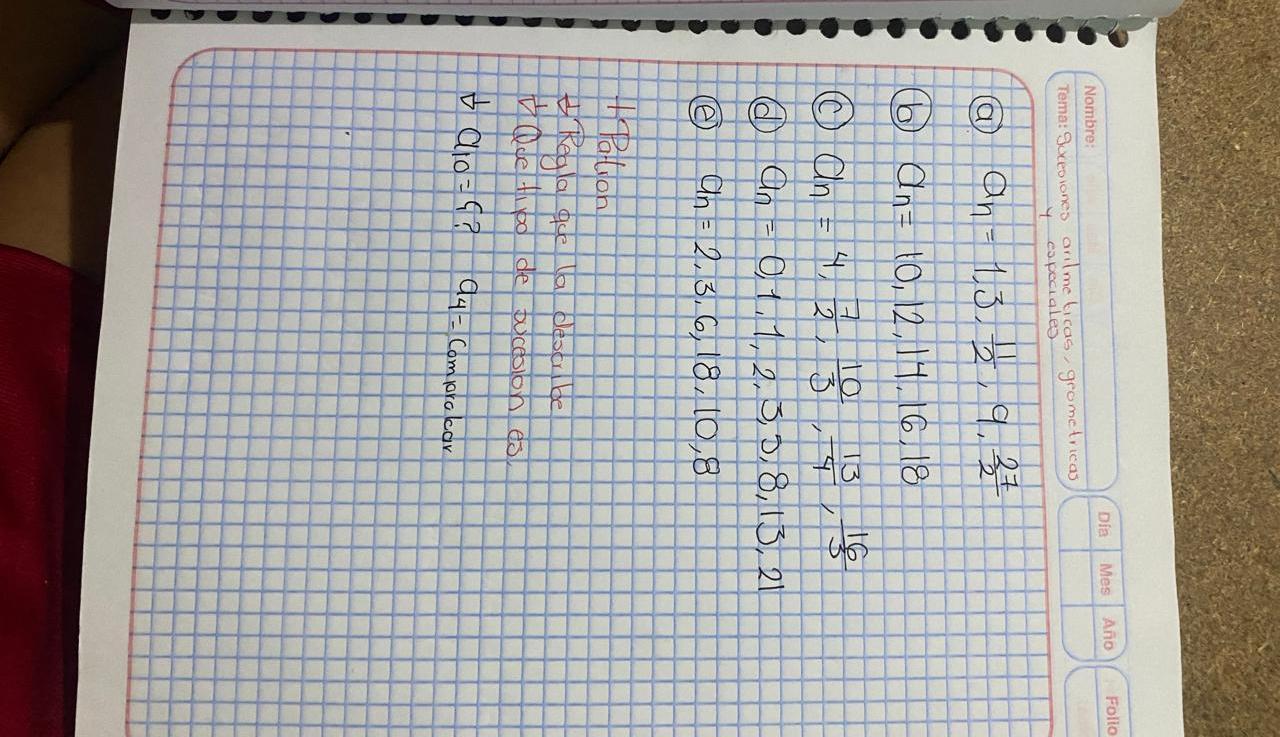 Nombre:
Tema: Sucesiones aritmeticas, geometricas
y especiales
Día Mes Año Folio
a an = 1, 3, 11/2, 9, 27/2
b an = 10, 12, 14, 16, 18
c an = 4, 7/2, 10/3, 13/4, 16/5
d an = 0, 1, 1, 2, 3, 5, 8, 13, 21
e an = 2, 3, 6, 18, 10, 8
+ Patron
↓ Regla que la describe
↓ Que tipo de sucesion es.
↓ a10 = ¿? a4 = Comprobar